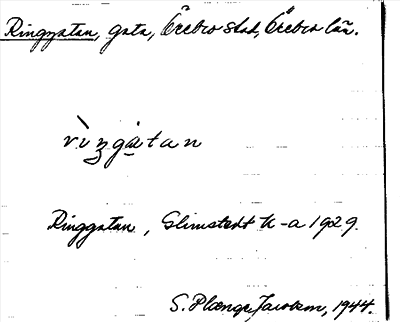 Ringgatan, gata, Örebro stad, Örebro län.
rìŋgàtan
Ringgatan, Glimstedt K-a 1929.
S. Plænge Jacobson, 1944.